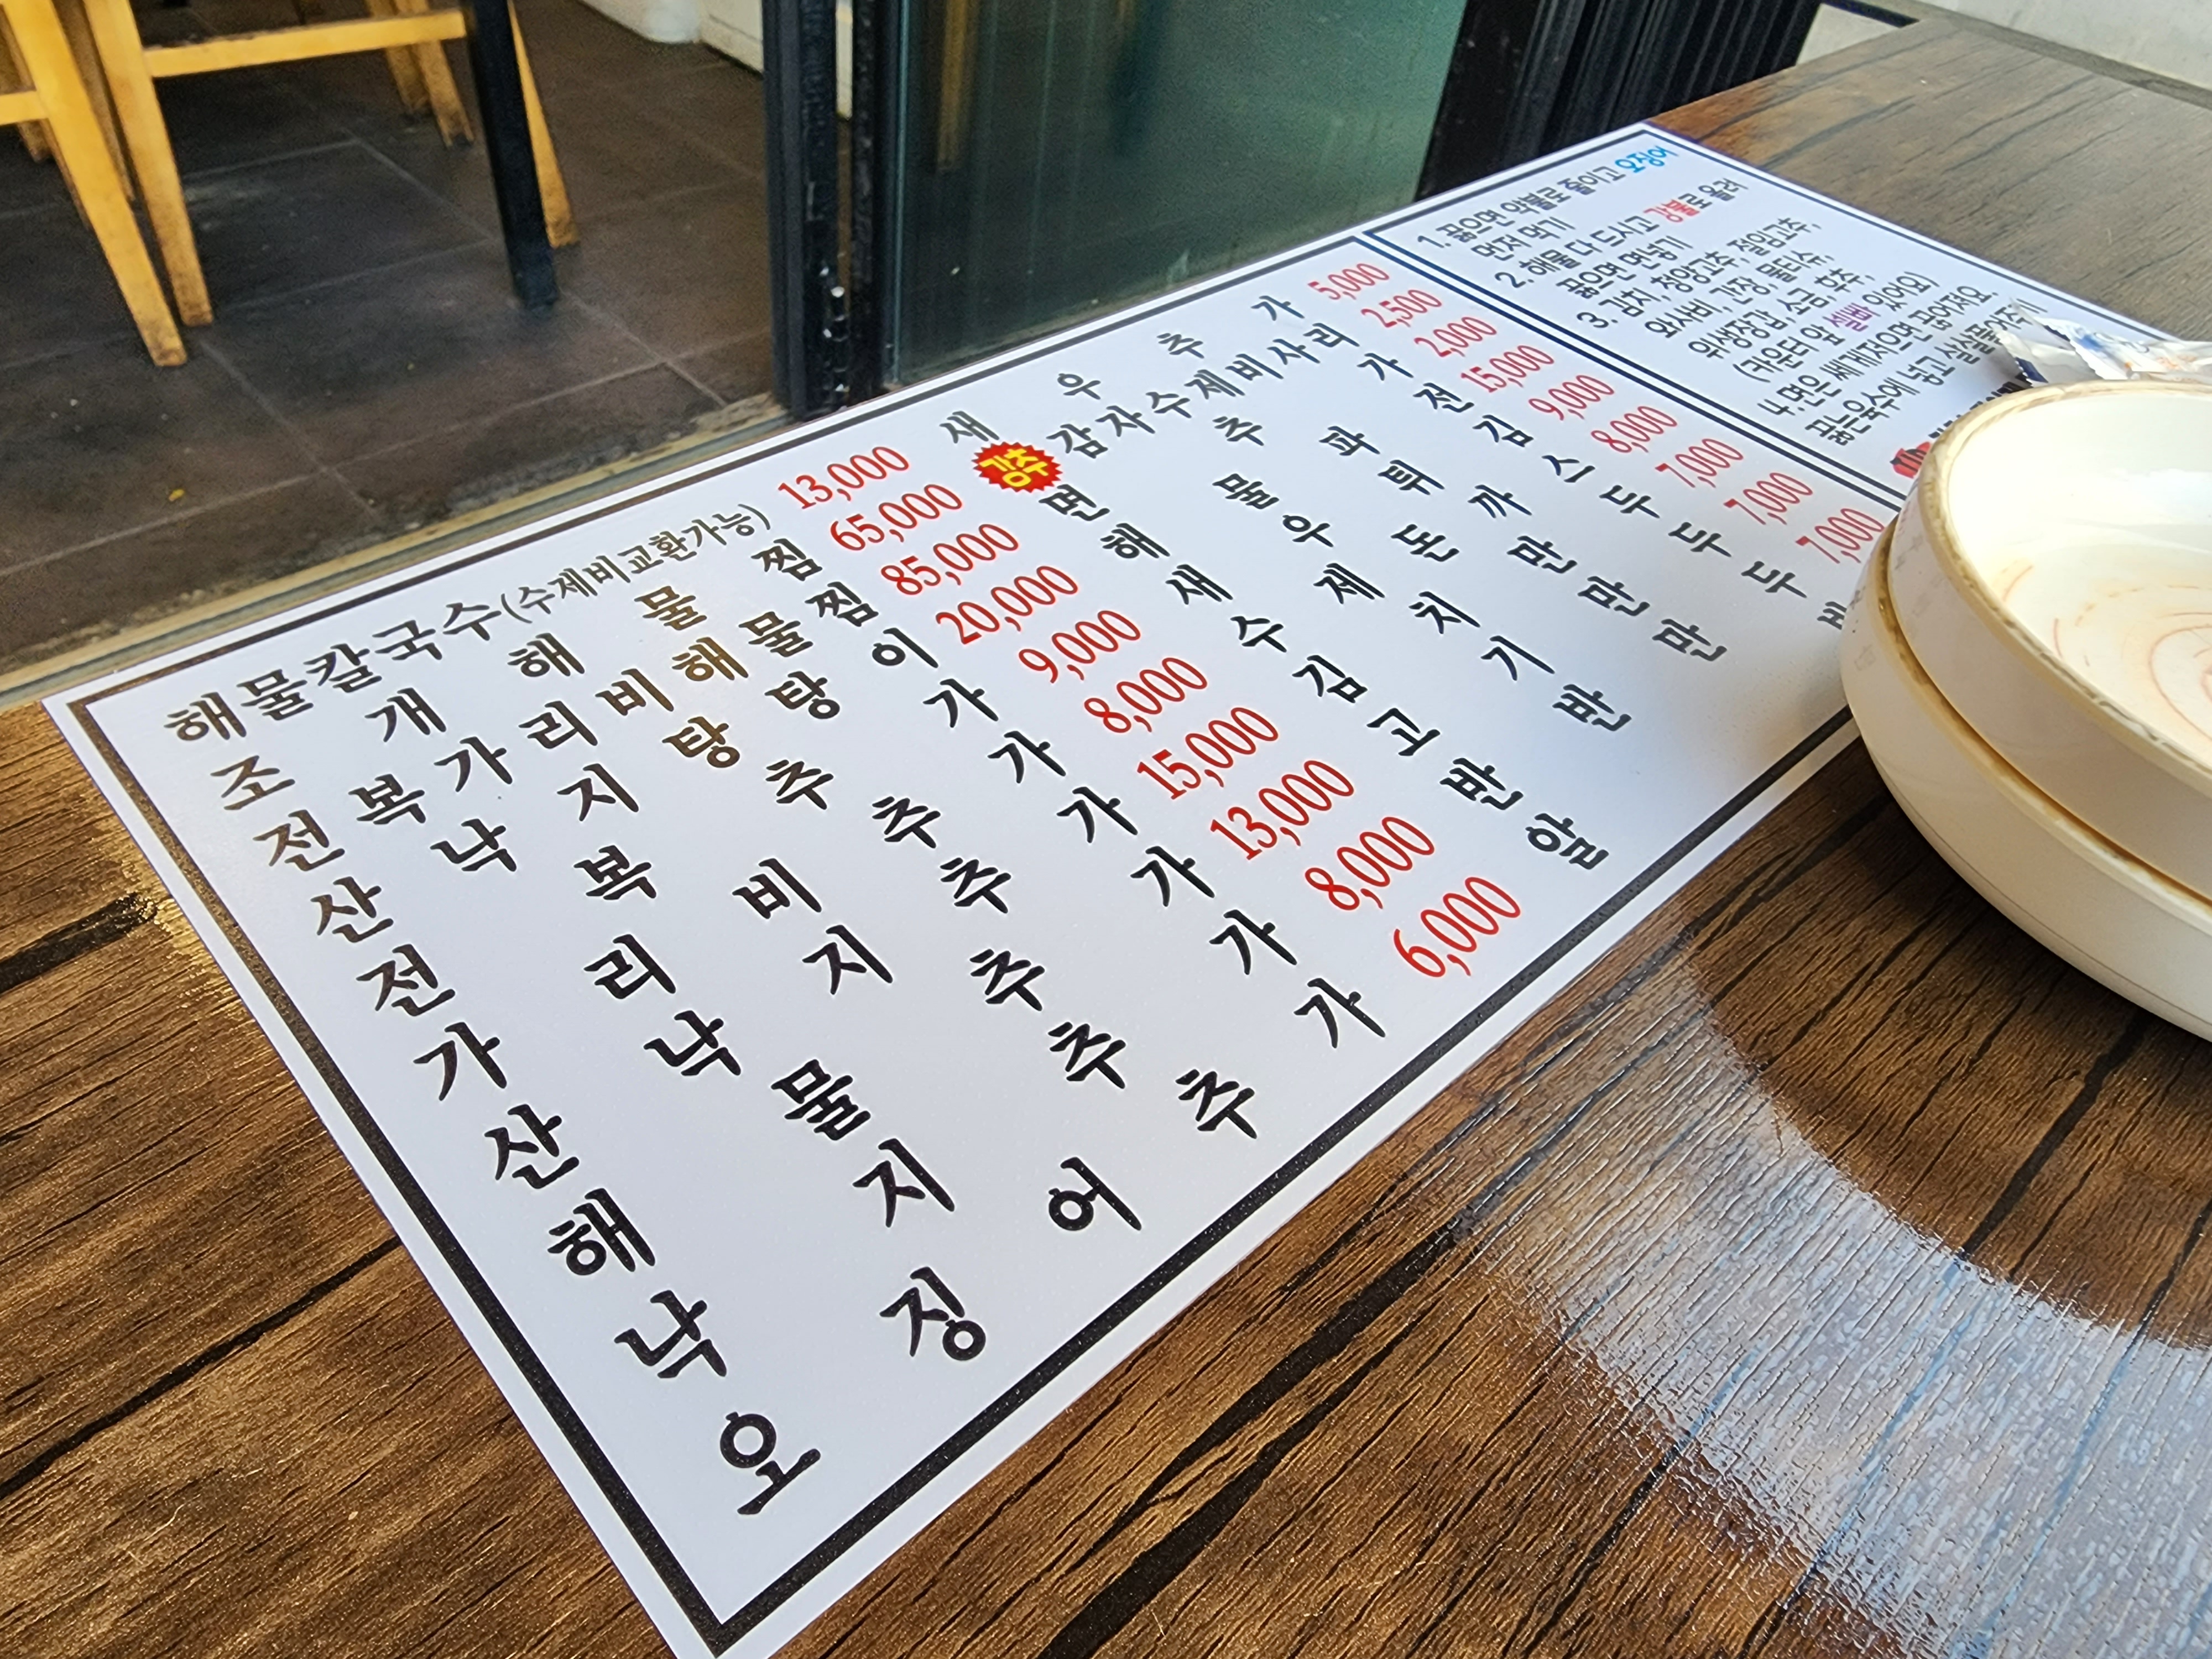 해물칼국수(수제비교환가능) 13,000
조개해물찜 65,000
전복가리비해물찜 85,000
산낙지탕탕이 20,000
전복추가 9,000
가리비추가 8,000
산낙지추가 15,000
해물추가 13,000
낙지추가 8,000
오징어추가 6,000
새우추가 5,000
강추 감자수제비사리 2,500
면추가 2,000
해물파전 15,000
새우튀김 9,000
수제돈까스 8,000
김치만두 7,000
고기만두 7,000
반반만두 7,000
알
1. 끓으면 약불로 줄이고 오징어
먼저 먹기
2. 해물 다 드시고 강불로 올려
끓으면 면넣기
3. 김치, 청양고추, 절임고추,
와사비, 간장, 물티슈,
위생장갑, 소금, 후추,
(카운터 앞 셀바 있어요)
4. 면은 쎄게저으면 끊어져요
끓는육수에 넣고